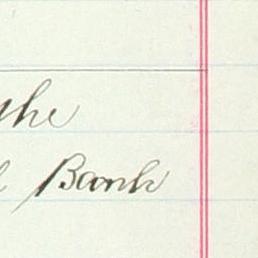 the
Bank